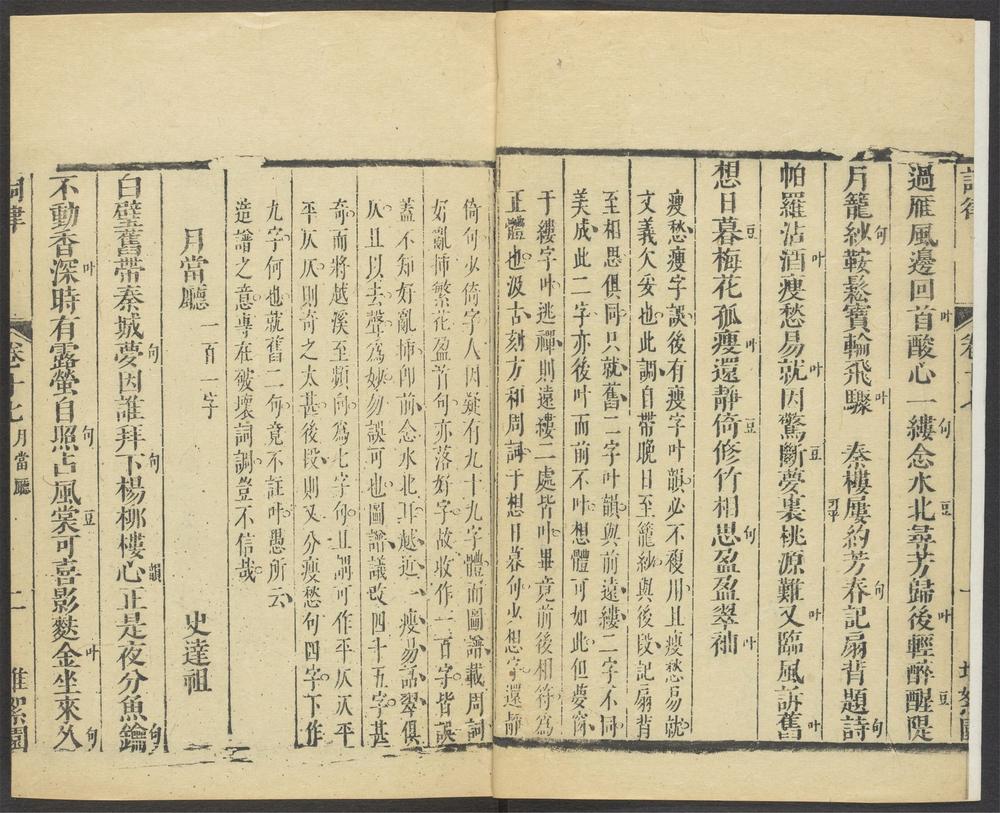 詞律 卷十七 一 堆絮園
過雁風邊回首叶酸心一縷句念水北豆尋芳歸後叶輕醉醒豆隄
月籠紗句鞍鬆寶輪飛驟叶 秦樓屢可平約芳春句記扇背題詩句
帕羅沾酒叶瘦愁易就叶因驚斷豆夢裏桃源難又叶臨風訴舊叶
想日暮豆梅花孤瘦叶還靜倚豆修竹相思句盈盈翠袖叶
瘦愁瘦字誤後有瘦字叶韻必不複用且瘦愁易就
文義欠妥也此調自帶晚日至籠紗與後段記扇背
至相思俱同只就舊二字叶韻與前遠縷二字不同
美成此二字亦後叶而前不叶想體可如此但夢窗
于縷字叶逃禪則遠縷二處皆叶畢竟前後相符為
正體也汲古刻方和周詞于想日暮句少想字還靜
倚句少倚字人因疑有九十九字體而圖譜載周詞
好亂揷繁花盈首句亦落好字故收作一百字皆誤
蓋不知好亂揷卽前念水北耳越近一瘦易話翠俱
仄且以去聲為妙勿誤可也圖譜議改四十五字甚
奇而將越溪至頻向為七字句且謂可作平仄仄平
平仄仄則奇之太甚後段則又分瘦愁句四字下作
九字何也就舊二句竟不註叶愚所云
造譜之意專在破壞詞調豈不信哉
月當廳 一百一字 史達祖
白璧舊帶秦城夢句因誰拜下句楊柳樓心韻正是夜分魚鑰句
不動香深叶時有露螢自照句占風裳豆可喜影麩金叶坐來久句
詞律 卷十七 月當廳 二 堆絮園